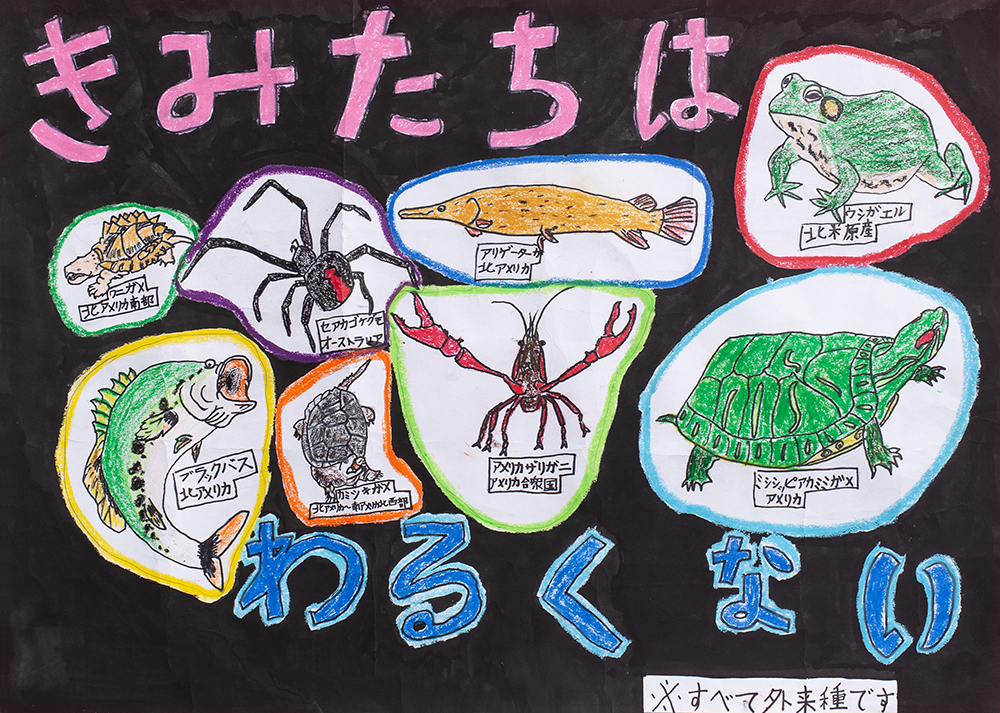 きみたちは
ウシガエル
北米原産
アリゲーターガ
北アメリカ
ワニガメ
北アメリカ南部
セアカゴケグモ
オーストラリア
ブラックバス
北アメリカ
カミツキガメ
北アメリカ〜南アメリカ北西部
アメリカザリガニ
アメリカ合衆国
ミシシッピアカミミガメ
アメリカ
わるくない
※すべて外来種です